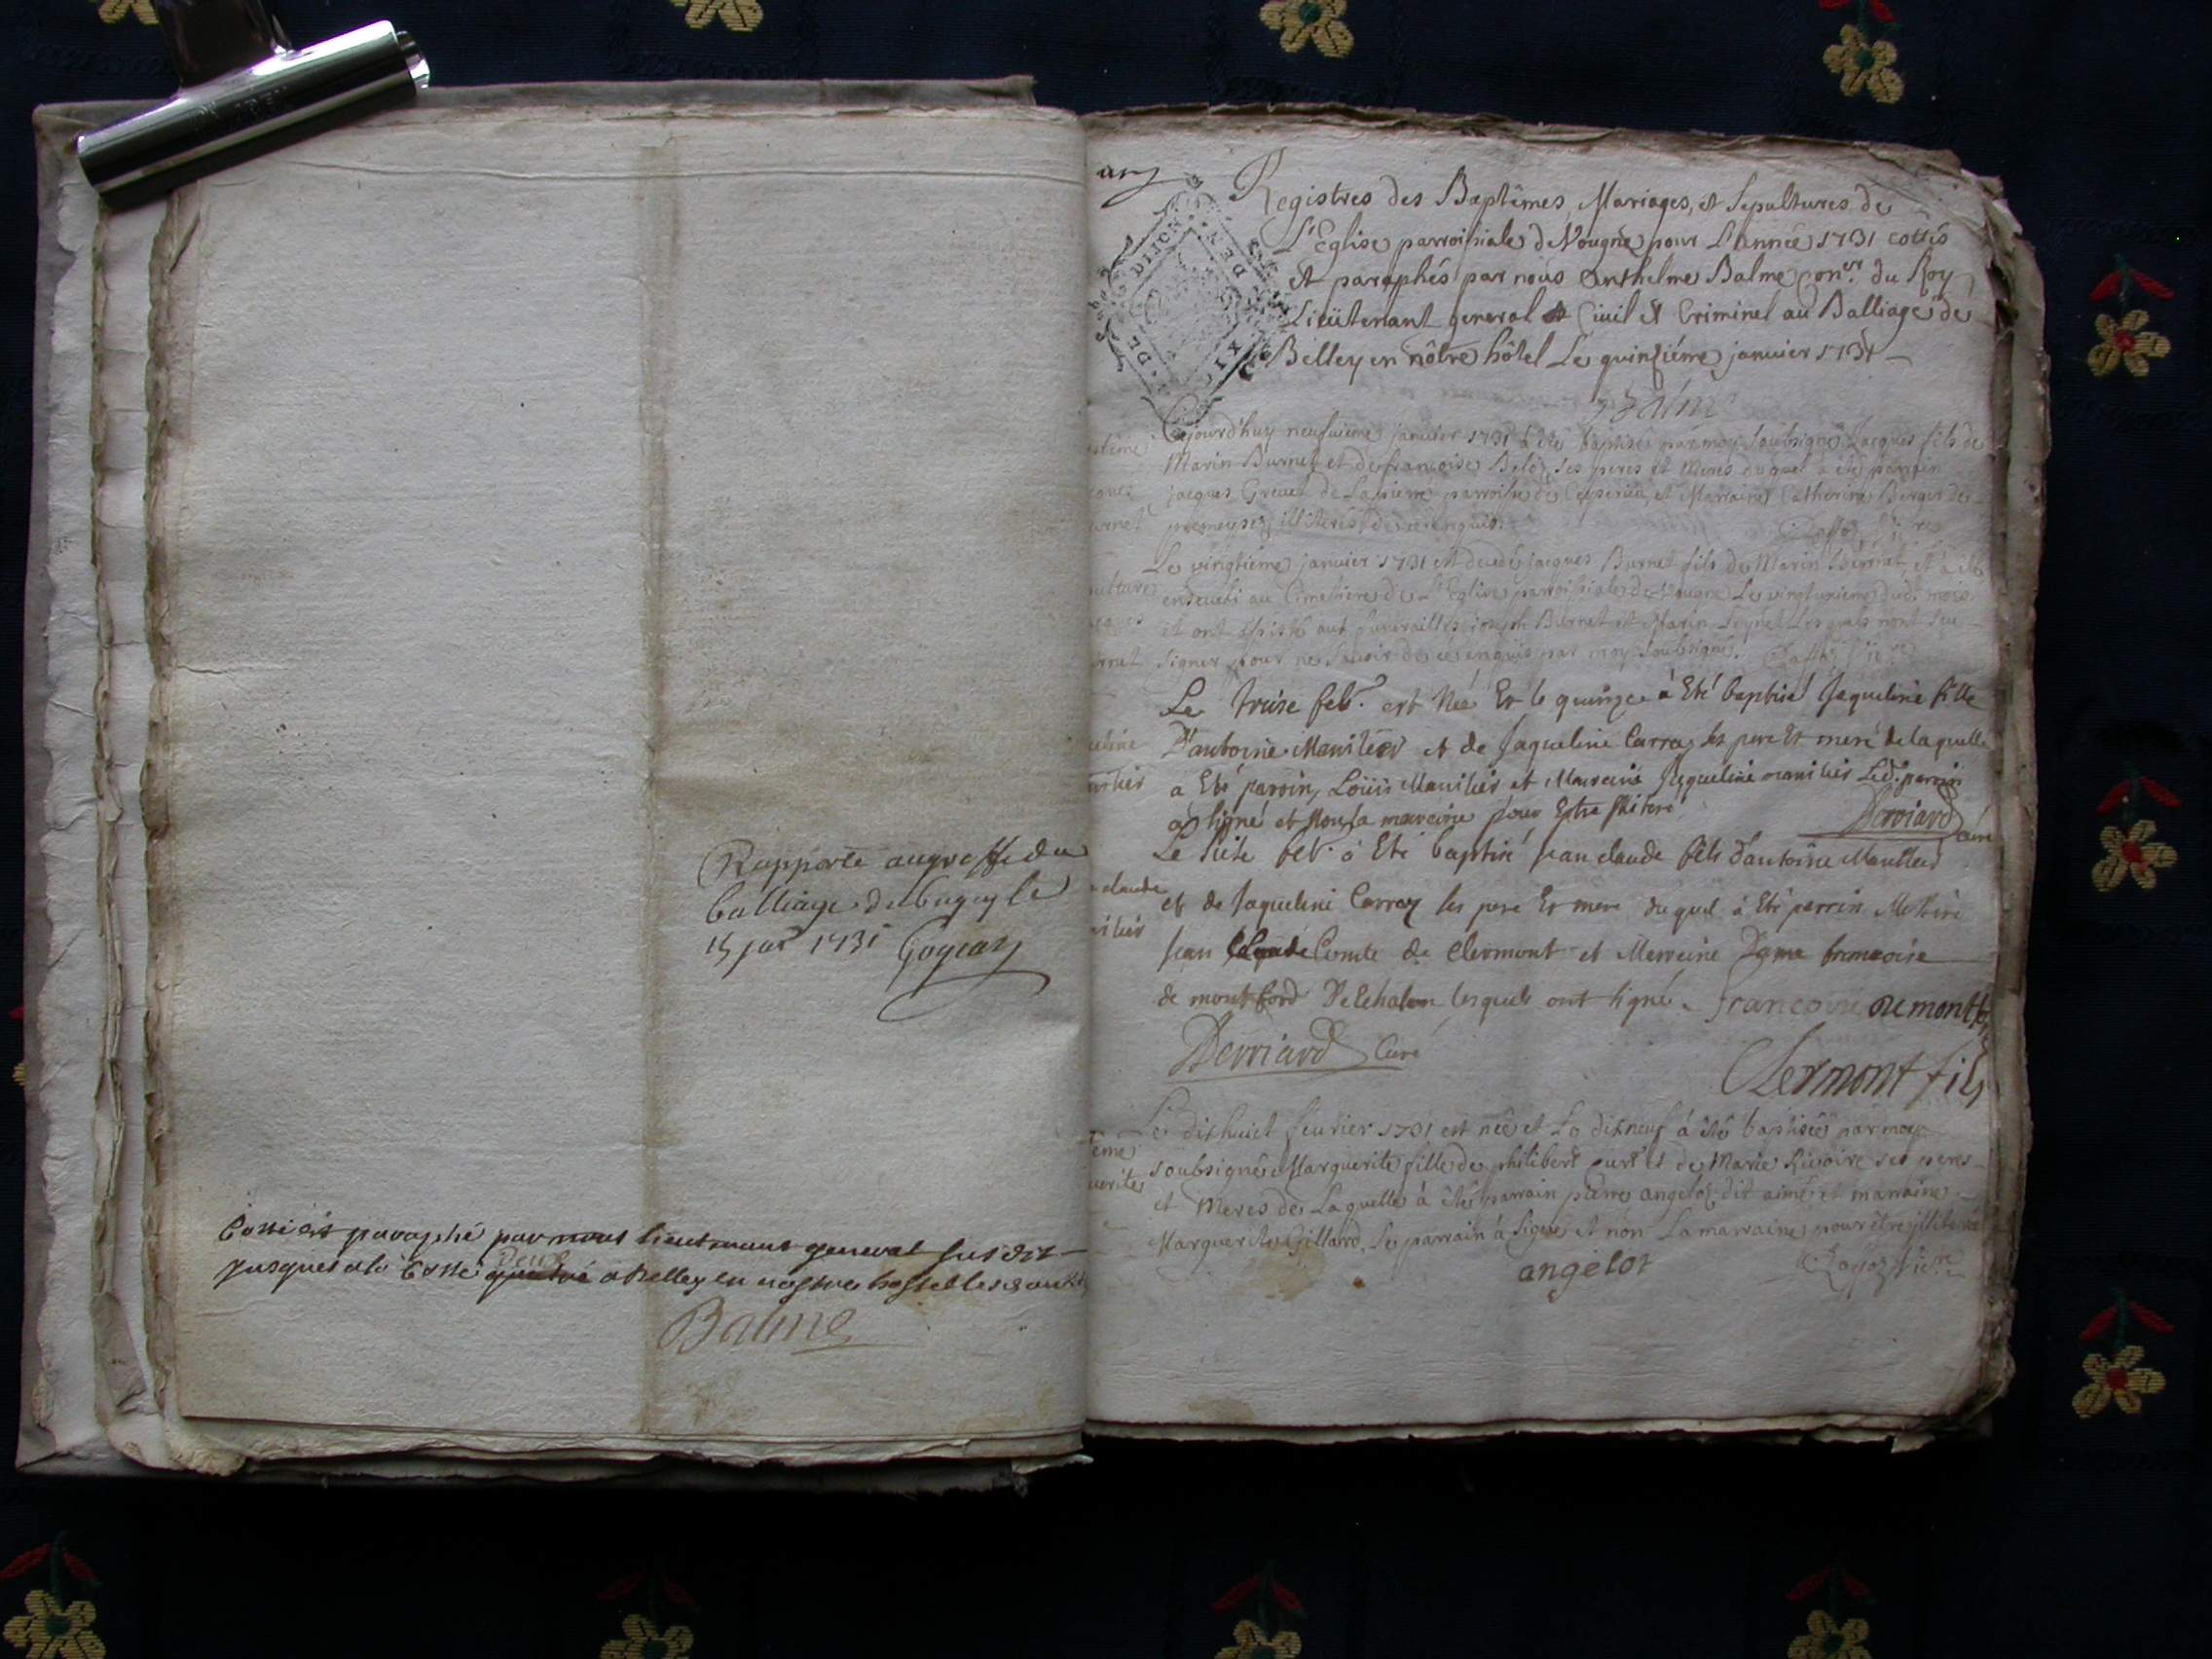 Rapporté au greffe du
Balliage de bugey le
15 jan 1731 Goyear
Cotté et paraphé par nous lieutenant general susdit
jusques a la Cotte Deux a Belley en nostre hostel les
Balme
Registres des Baptêmes, Mariages, et Sepultures de
L'Eglise parroissiale de Vougne pour L'année 1731 cottés
et paraphés par nous Anthelme Balme Con.er du Roy
Lieütenant general Civil et Criminel au Balliage de
Belley en nôtre hôtel Le quinziéme janvier 1731
Balme
DE DIJON
Cejourd'huy neufvieme janvier 1731 à été baptisé par moy soubsigné Jacques fils de
Marin Burnet et de francoise ses peres et Meres duquel à été parrain
jacques de parroisse de et Marraine Catherine Berger de
illiterés de ce enquis.
Le vingtiéme janvier 1731 est decedé Jacques Burnet fils de Marin Burnet, et à été
enseveli au Cimetiere de L'Eglise parroissiale de Vougne Le vingtunieme dud. mois
et ont assisté aux funerailles joseph Burnet et Marin Lesquels n'ont sceu
signer pour ne savoir de ce enquis par moy soubsigné.
Le treise feb. est Née Et le quinze à Eté baptisé Jaqueline fille
D'antoine Manilier et de Jaqueline Carraz ses pere Et mere de laquelle
a Eté parrin, Loüis Manilier et Mareine Jaqueline manilier Led. parrin
à signé et Non la mareine pour Estre illiteré Derriard Curé
Le seise feb. à Eté baptisé jean claude fils d'antoine Manilier
et de Jaqueline Carraz ses pere Et mere duquel à Eté perrin Messire
jean Claude Comte de Clermont et Merreine Dame francoise
de montford D'Echalon lesquels ont signé. francoise De montf
Derriard Curé
Clermont fils
Le dixhuict fevrier 1731 est née et Le dixneuf à été baptisée par moy
soubsigné Marguerite fille de philibert et de Marie Rivoire ses peres
et Meres de Laquelle à été parrain pierre angelot dit aimé et marraine
Marguerite Gillard, Le parrain à signé et non La marraine pour être illiterée
angelot